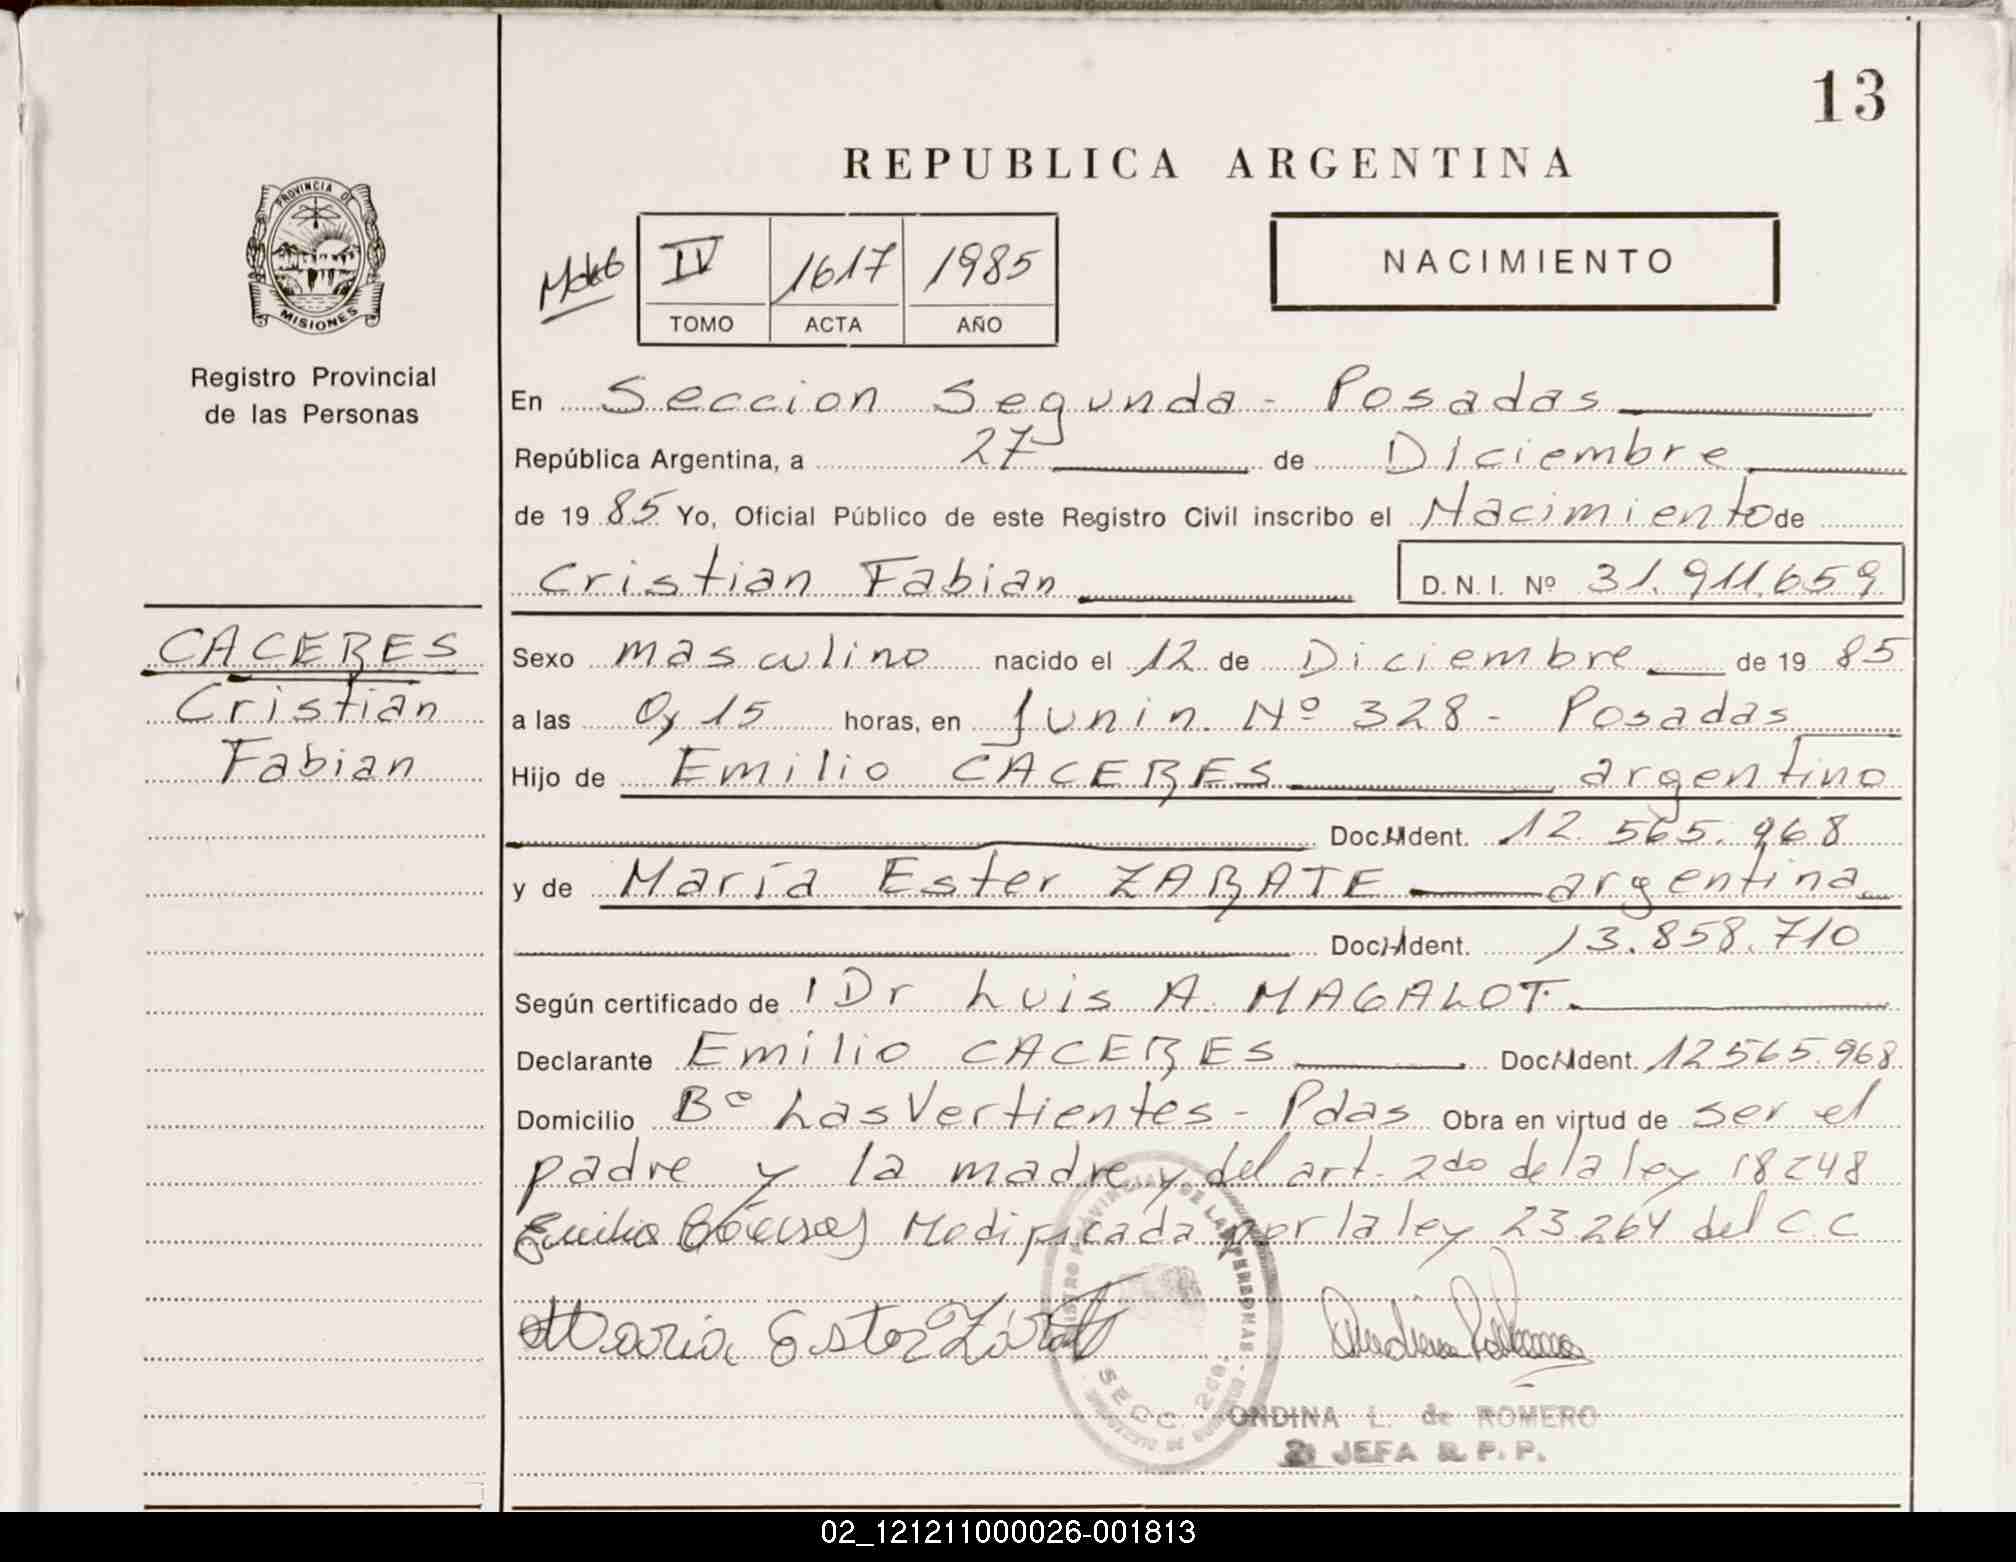 13
REPUBLICA ARGENTINA
PROVINCIA DE
MISIONES
IV 1617 1985
TOMO ACTA AÑO
NACIMIENTO
Registro Provincial
de las Personas
En Seccion Segunda - Posadas
República Argentina, a 27 de Diciembre
de 19 85 Yo, Oficial Público de este Registro Civil inscribo el Nacimiento de
Cristian Fabian D.N.I. Nº 31.911.659
CACERES
Cristian
Fabian
Sexo masculino nacido el 12 de Diciembre de 19 85
a las 0,15 horas, en Junin Nº 328 - Posadas
Hijo de Emilio CACERES argentino
Doc. Ident. 12.565.968
y de María Ester ZARATE argentina
Doc. Ident. 13.858.710
Según certificado de Dr Luis A. MAGALOT.
Declarante Emilio CACERES Doc. Ident. 12565.968
Domicilio Bº Las Vertientes - Pdas Obra en virtud de ser el
padre y la madre y del art. 2do de la ley 18248
Emilio Cáceres Modificada por la ley 23.264 del C.C
Maria Ester Zárate
SECC. 2da.
ONDINA L. de ROMERO
JEFA R.P.P.
02_121211000026-001813